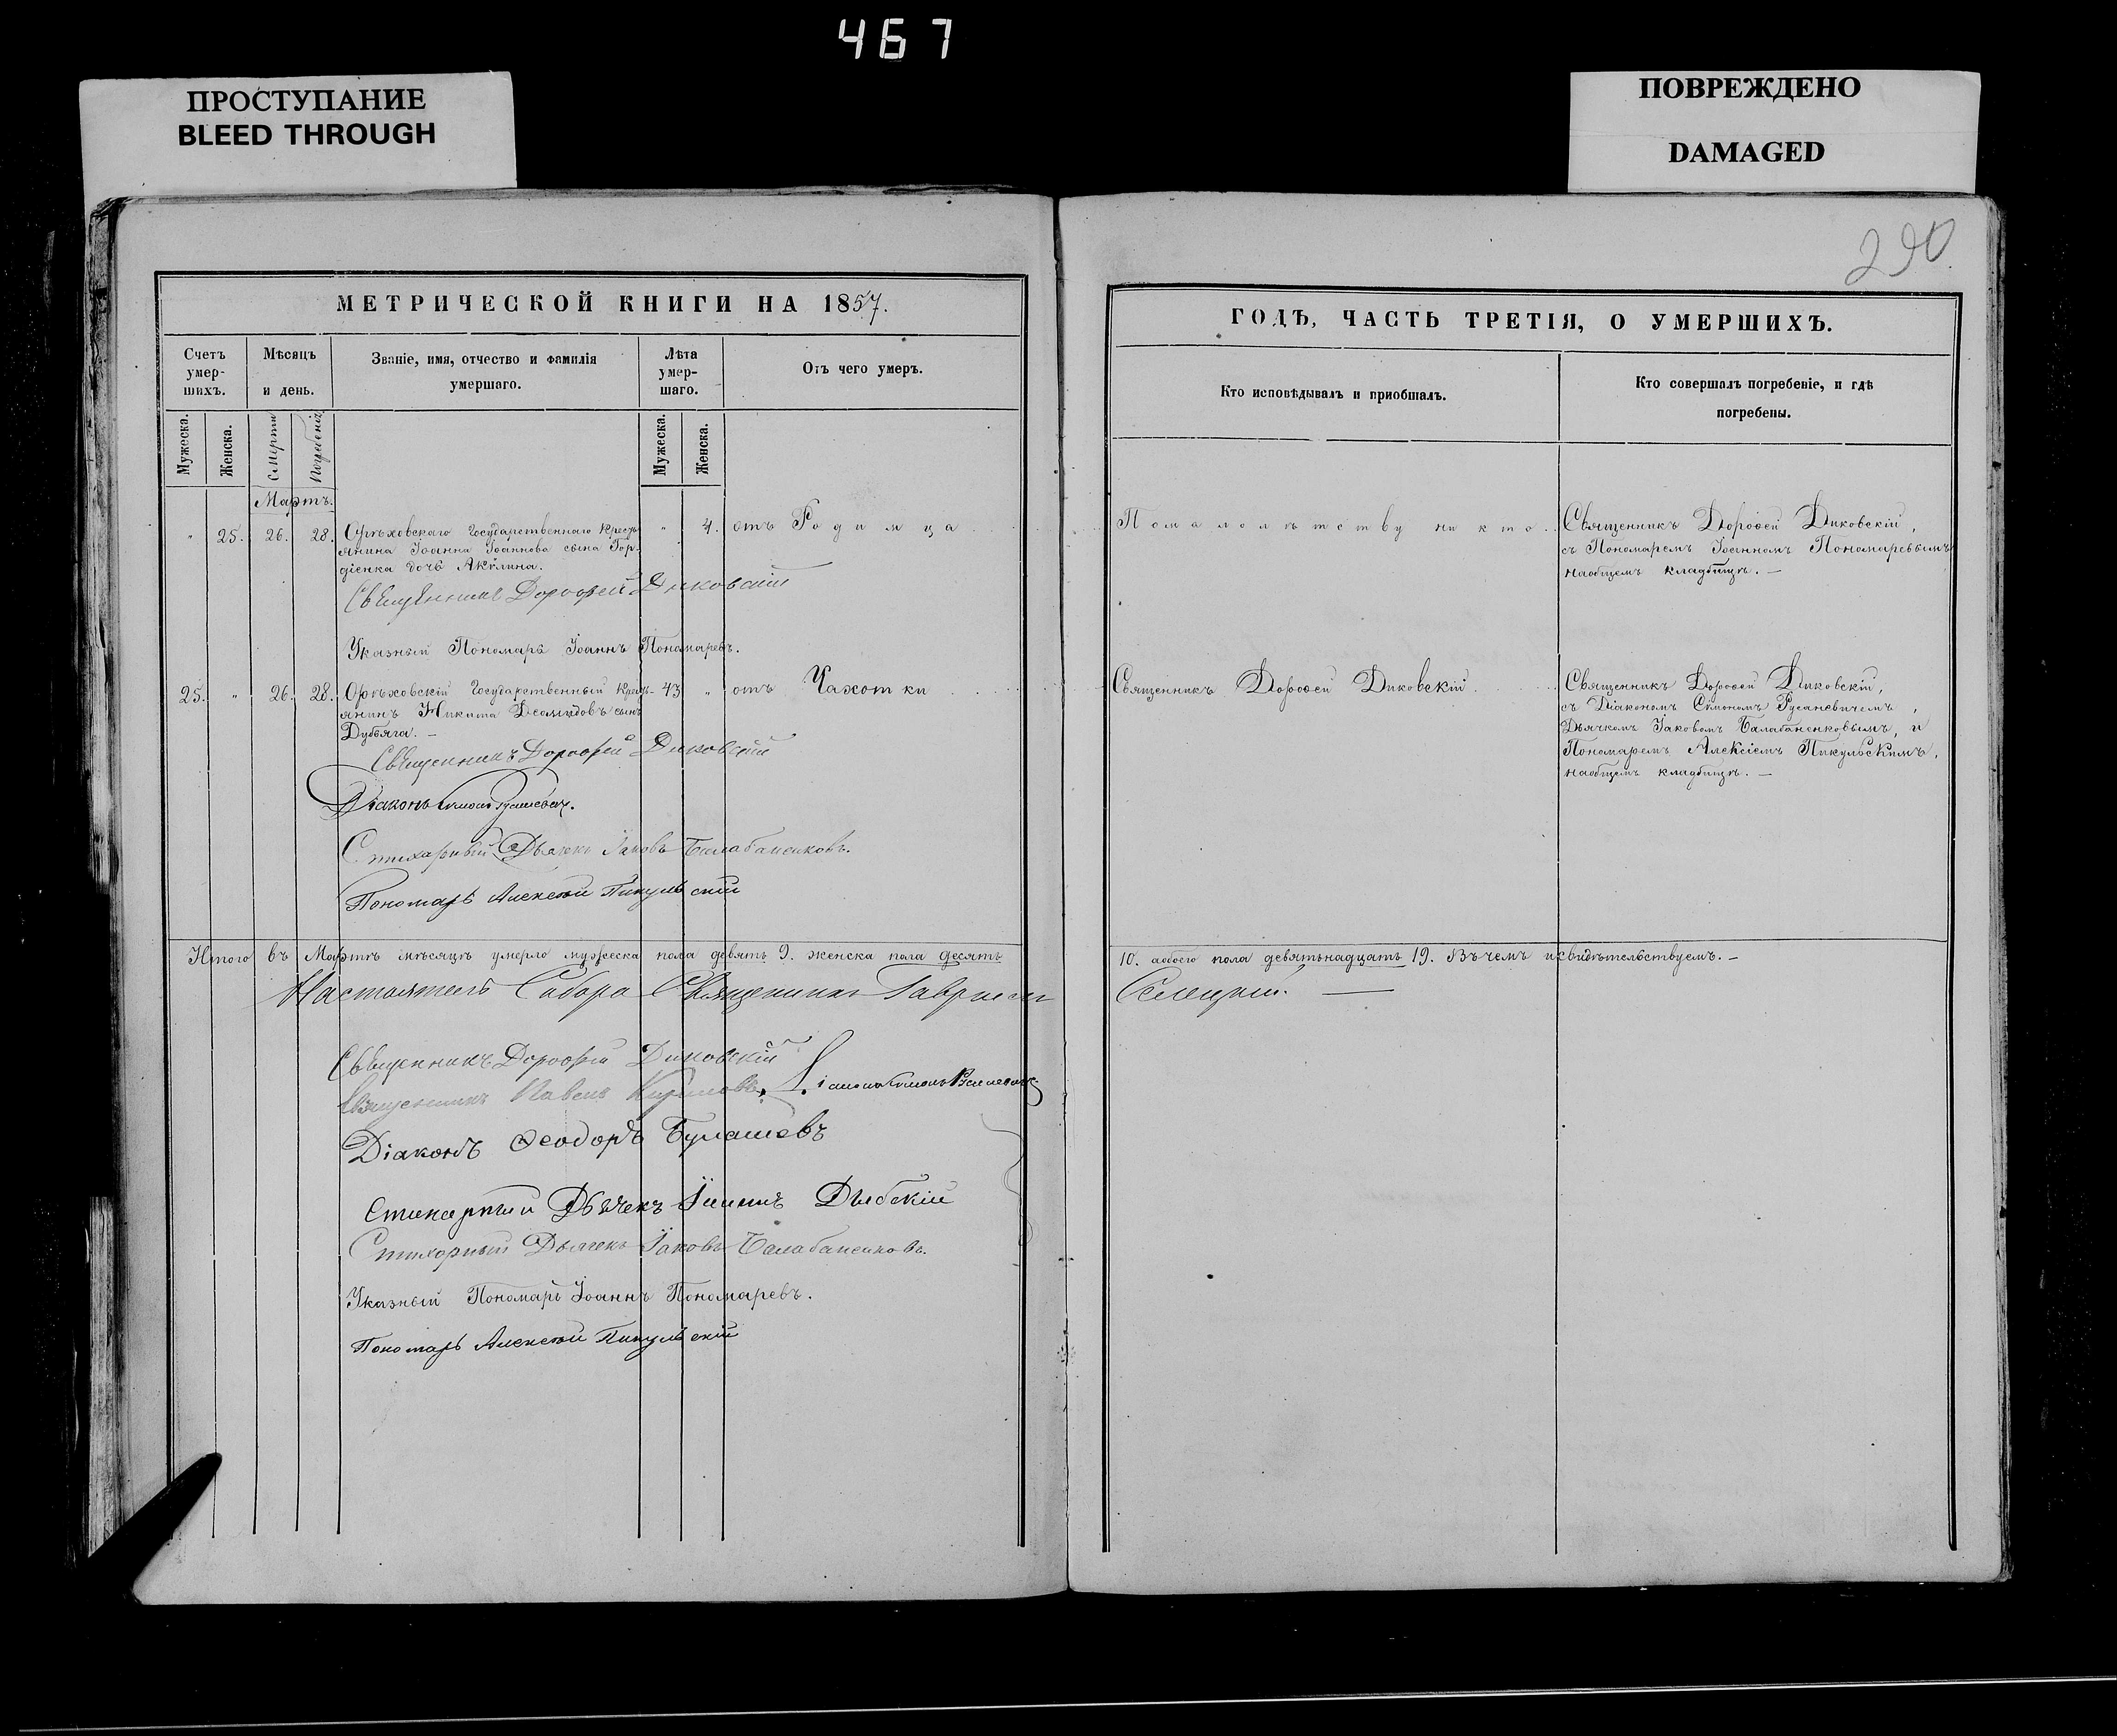 467
ПРОСТУПАНИЕ
BLEED THROUGH
ПОВРЕЖДЕНО
DAMAGED
290
МЕТРИЧЕСКОЙ КНИГИ НА 1857.
Счетъ умер- шихъ.
Мѣсяцъ и день.
Званіе, имя, отчество и фамилія умершаго.
Лѣта умер- шаго.
Отъ чего умеръ.
Мужеска.
Женска.
Смерти
Погребенія
Мужеска.
Женска.
Мартъ.
" 25. 26. 28. Орѣховскаго Государственнаго Кресть " 4. отъ Родимца
янина Іоанна Іоаннова сына Гор-
діенка дочь Акѵлина.
Священникъ Дорофей Диковскій
Указный Пономарь Іоаннъ Пономаревъ.
25. " 26. 28. Орѣховскій Государственный Крест- 43 " отъ Чахотки
янинъ Никита Дубяга. —
Священникъ Дорофей Диковскій
Діаконъ
Стихарный Дьячекъ Іаковъ Балабаненковъ.
Пономарь Алексѣй Пикульскій
Итого въ Мартѣ мѣсяцѣ умерло мужеска пола девять 9. женска пола десять
Настоятель Собора Священникъ Гавріилъ
Священникъ Дорофей Диковскій
Священникъ Павелъ
Діаконъ Ѳеодоръ
Стихарный Дьячекъ
Стихарный Дьячекъ Іаковъ Балабаненковъ.
Указный Пономарь Іоаннъ Пономаревъ.
Пономарь Алексѣй Пикульскій
ГОДЪ, ЧАСТЬ ТРЕТІЯ, О УМЕРШИХЪ.
Кто исповѣдывалъ и пріобщалъ.
Кто совершалъ погребеніе, и гдѣ погребены.
По малолѣтству никто.
Священникъ Дороѳей Диковскій,
съ Пономаремъ Іоанномъ Пономаревымъ
на общемъ кладбищѣ. —
Священникъ Дороѳей Диковскій
Священникъ Дороѳей Диковскій,
съ Діакономъ Сѵмономъ Русаневичемъ,
Дьячкомъ Іаковомъ Балабаненковымъ, и
Пономаремъ Алексіемъ Пикульскимъ,
на общемъ кладбищѣ. —
10. а обоего пола девятьнадцать 19. Въ чемъ и свидѣтельствуемъ. —
Селецкій. —